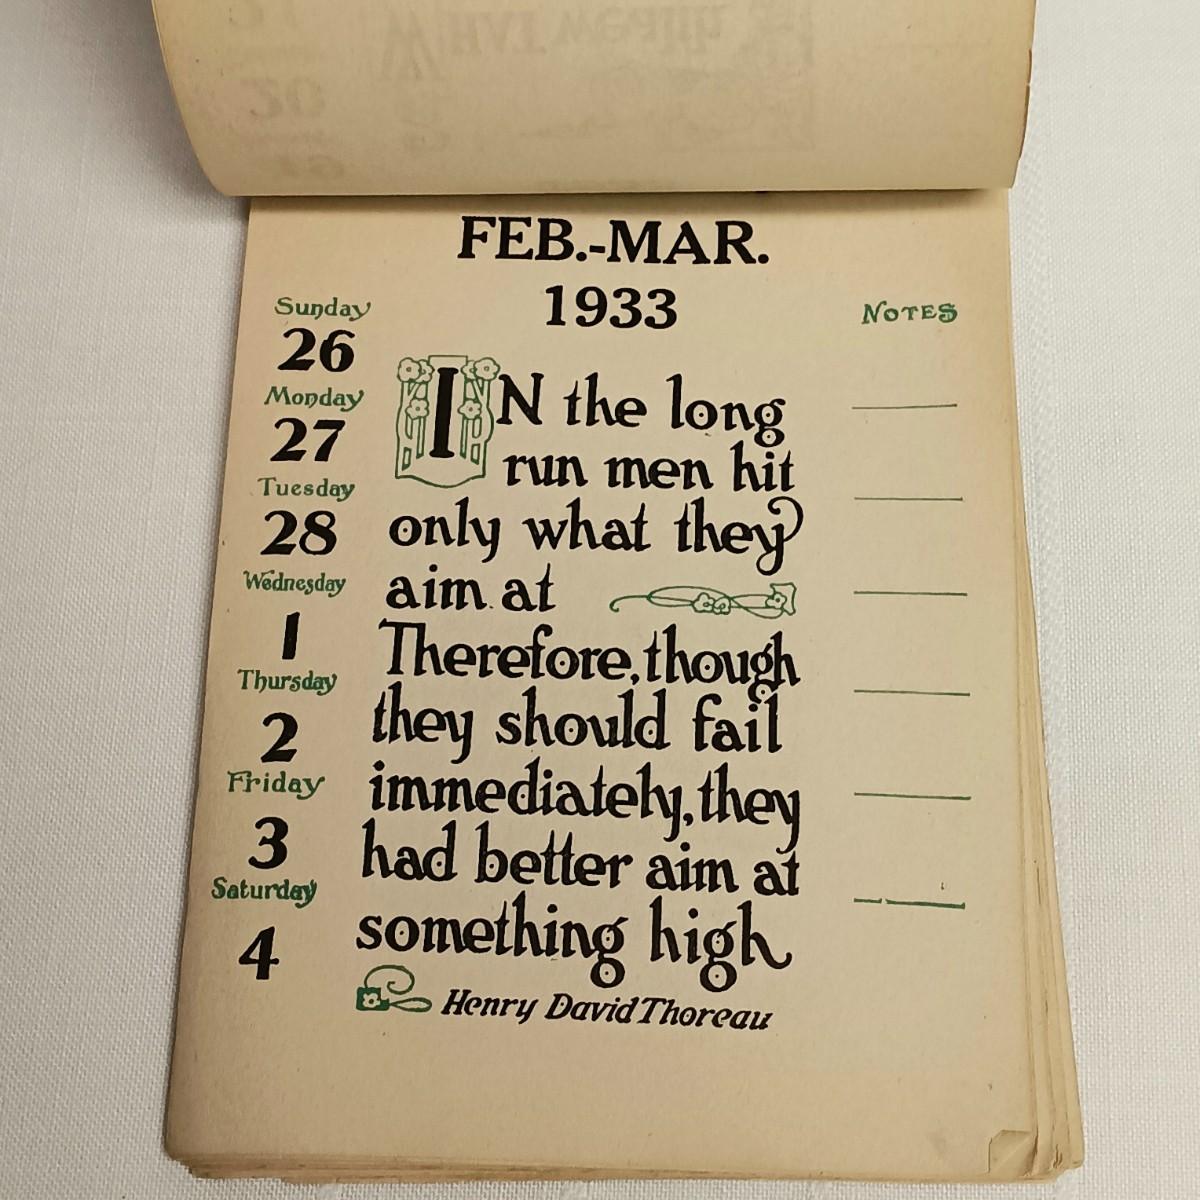 WHAT wealth
FEB.-MAR.
1933
Sunday
26
Monday
27
Tuesday
28
Wednesday
1
Thursday
2
Friday
3
Saturday
4
IN the long
run men hit
only what they
aim at
Therefore, though
they should fail
immediately, they
had better aim at
something high
Henry David Thoreau
NOTES